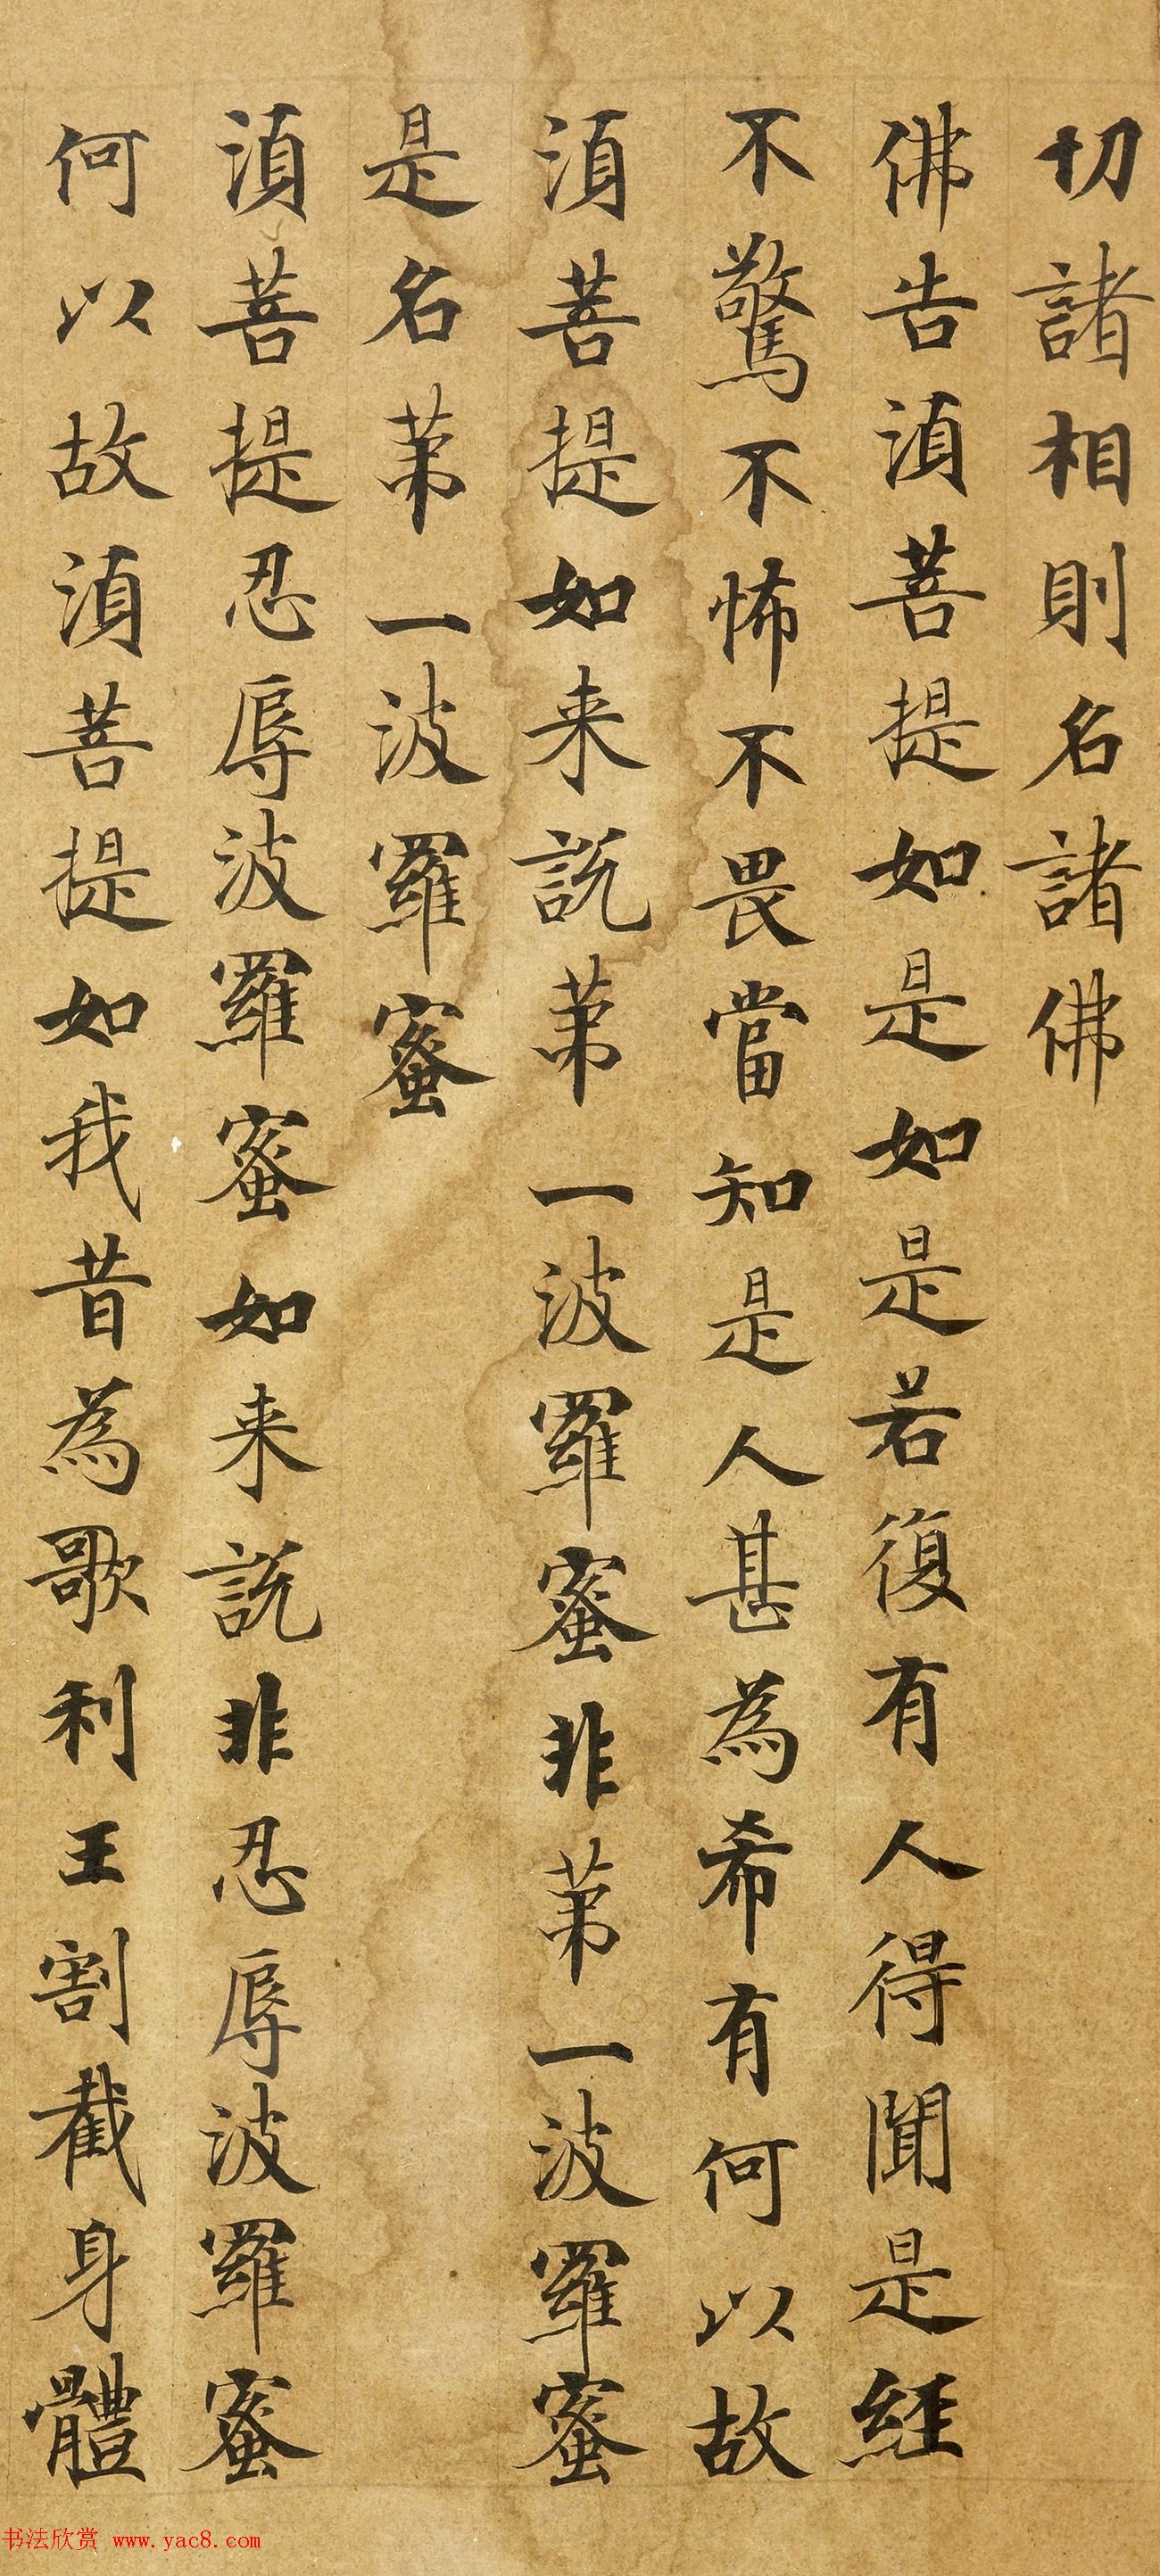 切諸相則名諸佛
佛告湏菩提如是如是若復有人得聞是經
不驚不怖不畏當知是人甚為希有何以故
湏菩提如来說苐一波羅蜜非苐一波羅蜜
是名苐一波羅蜜
湏菩提忍辱波羅蜜如来說非忍辱波羅蜜
何以故湏菩提如我昔為歌利王割截身體
书法欣赏 www.yac8.com